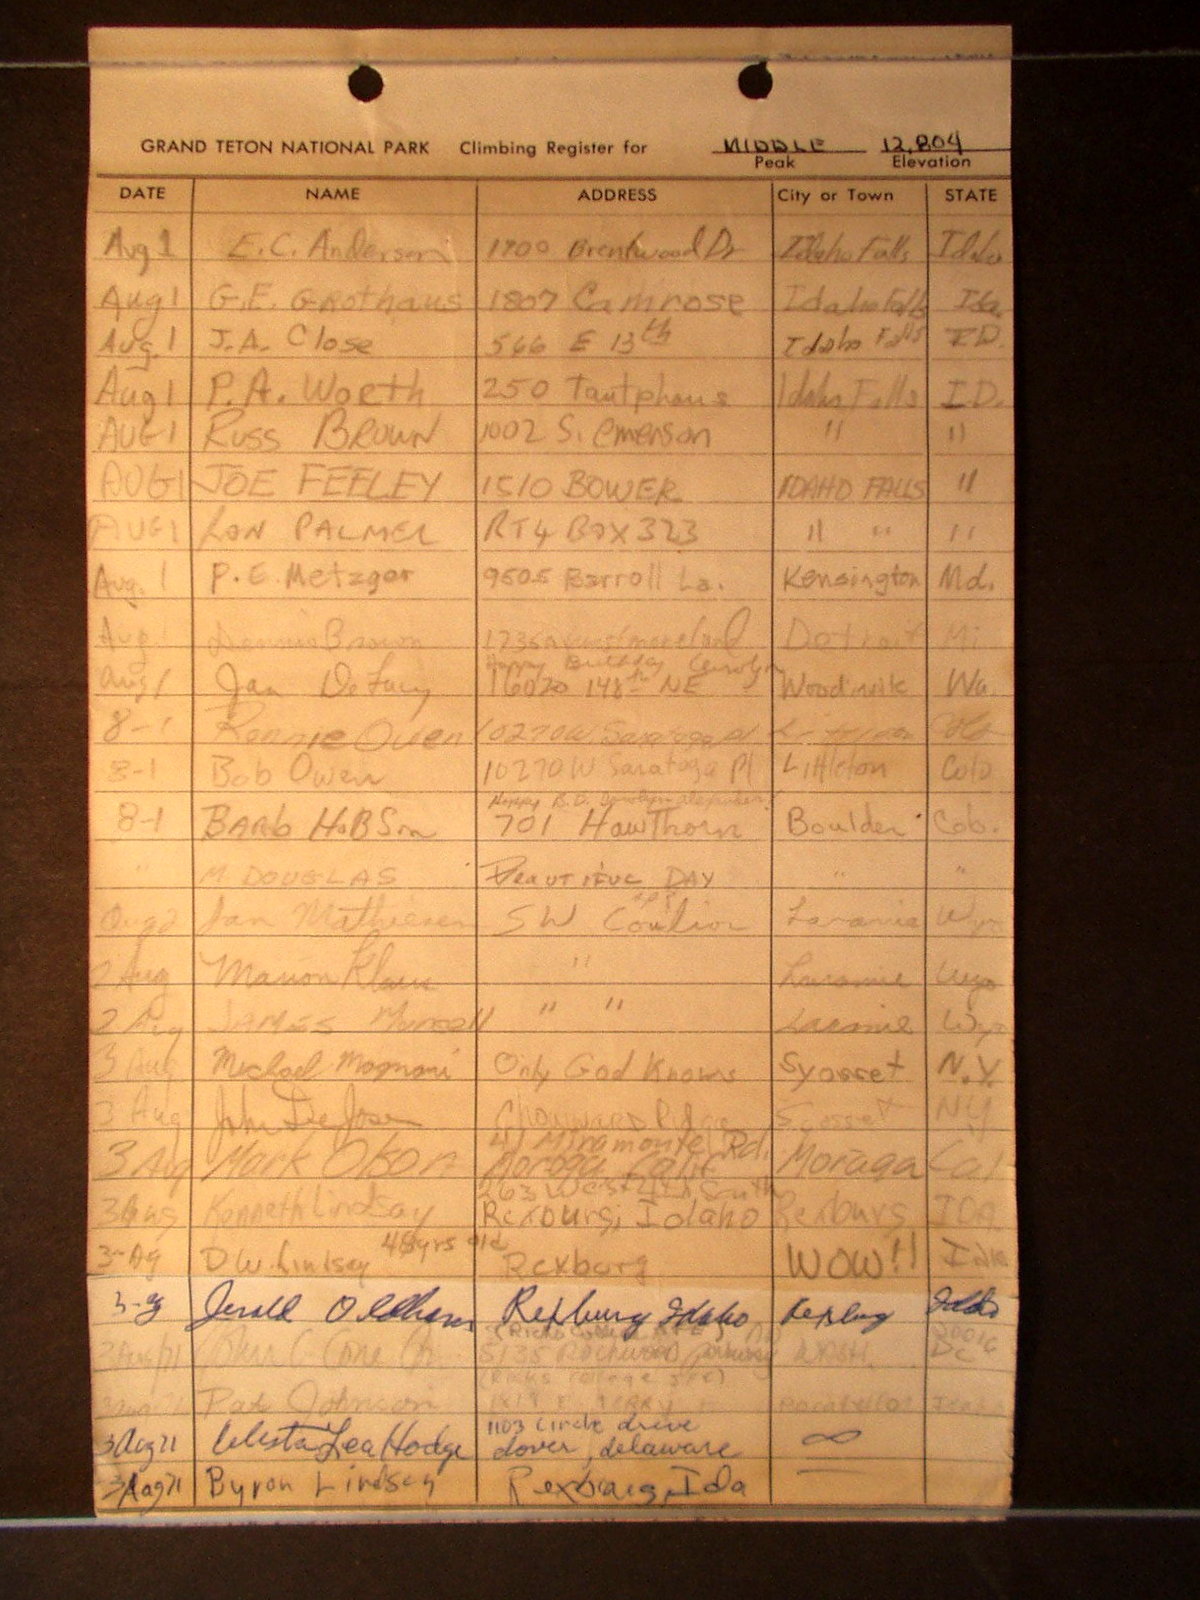 GRAND TETON NATIONAL PARK Climbing Register for MIDDLE 12,804
Peak Elevation
DATE NAME ADDRESS City or Town STATE
Aug 1 E.C. Anderson 1900 Brentwood Dr Idaho Falls Idaho
Aug 1 G.E. Grothaus 1807 Camrose Idaho Falls Ida.
Aug. 1 J.A. Close 566 E 13th Idaho Falls ID.
Aug 1 P.A. Worth 250 Tautphaus Idaho Falls I.D.
AUG 1 RUSS BROWN 1002 S. emerson " "
AUG 1 JOE FEELEY 1510 BOWER IDAHO FALLS "
AUG 1 LON PALMER RT4 BOX 323 " " "
Aug. 1 P.E. Metzger 9505 Barroll La. Kensington Md.
Aug 1 Dennis Brown Detroit Mi
Happy Birthday Carolyn
Aug 1 Jan 16020 148th NE Wa.
8-1 Ronnie Owen 10270 W. Saratoga Pl Colo
8-1 Bob Owen 10270 W Saratoga Pl Littleton Colo
Happy B.D. Carolyn
8-1 BARB HOBSon 701 HawThorn Boulder Colo.
" M. DOUGLAS BEAUTIFUL DAY " "
Aug 2 Jan Mathiesen SW Coulior Laramie Wyo
2 Aug Marion Klaus " Laramie Wyo
2 Aug JAMES " " Laramie Wyo
3 Aug Michael Magnani Only God Knows Syosset N.Y.
3 Aug John DeJose Syosset NY
41 Miramonte Rd.
3 Aug Mark Oken Moraga Calif Moraga Cal
263 West 4th South
3 Aug Kenneth Lindsay Rexburg, Idaho Rexburg IDA
3-Ag D W. Lindsey 48yrs old Rexburg WOW!! Idaho
3- Jerald Oldham Rexburg Idaho Rexburg Idaho
5135 Rockwood Parkway WASH. DC
(Ricks college
Pat Johnson Pocatello Idaho
1103 circle drive
3 Aug 71 Celesta Lea Hodge dover, delaware ∞
3 Aug 71 Byron Lindsay Rexburg, Ida —